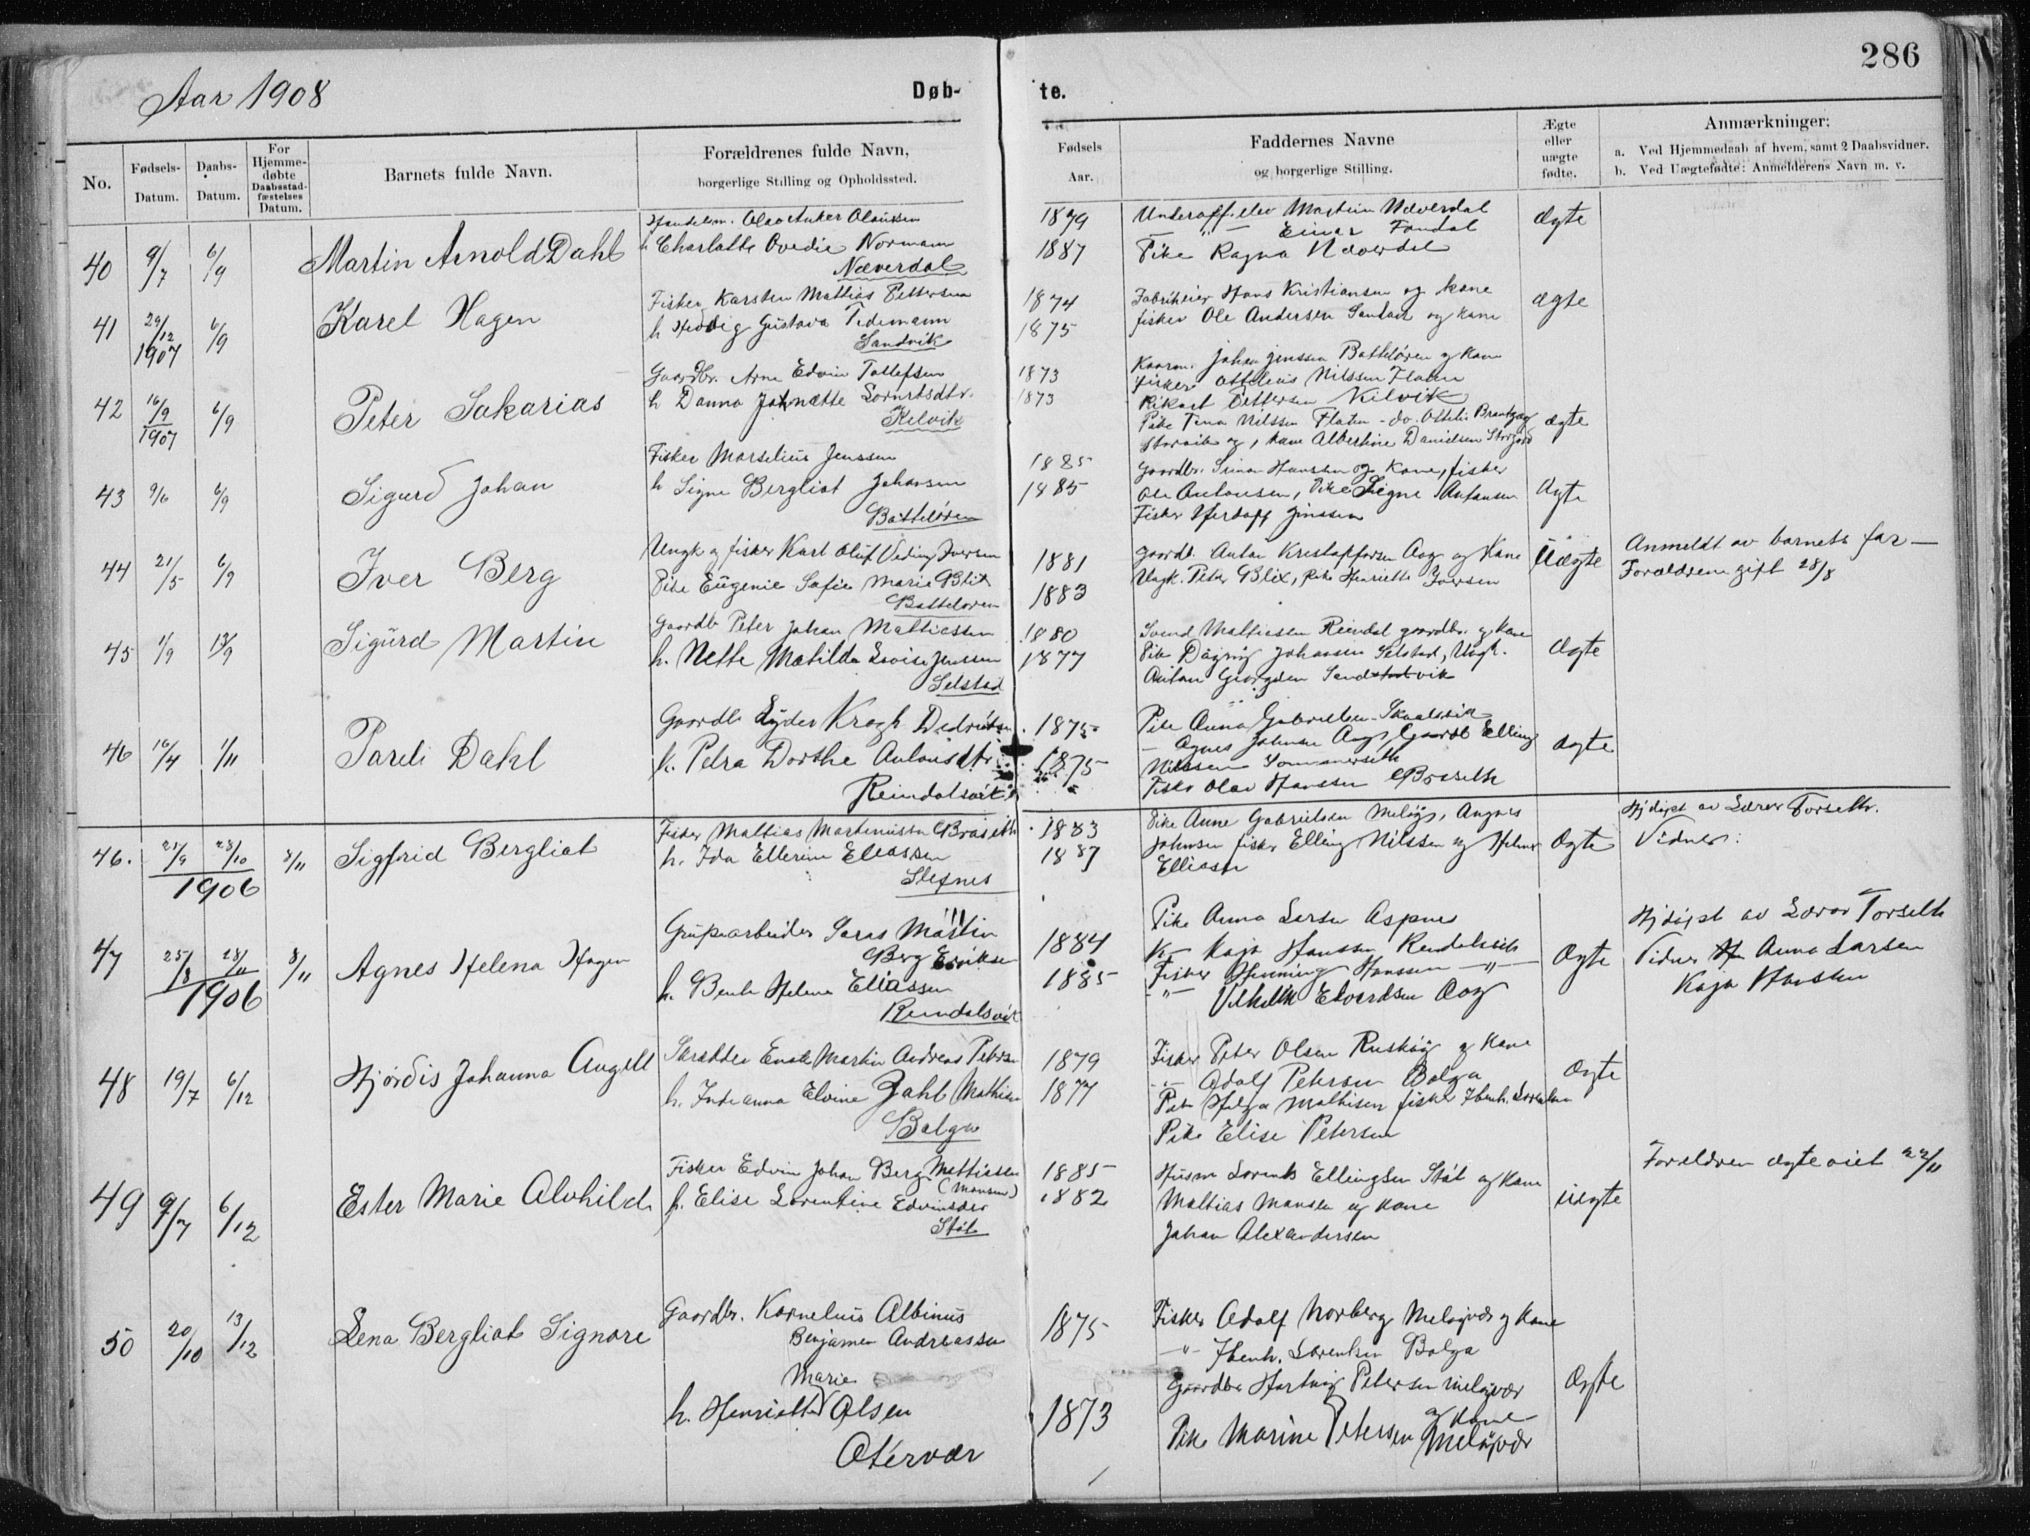 286
Aar 1908
Døb-
te.
No.
Fødsels-
Datum.
Daabs-
Datum.
For
Hjemme-
døbte
Daabsstad-
fæstelses
Datum.
Barnets fulde Navn.
Forældrenes fulde Navn,
borgerlige Stilling og Opholdssted.
Fødsels
Aar.
Faddernes Navne
og borgerlige Stilling.
Ægte
eller
uægte
fødte.
Anmærkninger:
a. Ved Hjemmedaab af hvem, samt 2 Daabsvidner.
b. Ved Uægtefødte: Anmelderens Navn m. v.
40 9/7 6/9 Martin Arnold Dahl
Handelsm. Olaf Anker Olaussen
h Charlotte Ovedie Normann
Næverdal
1879
1887
Underoff. elev Martin Næverdal
— " — Einar
Pike Ragna Næverdal
ægte
41 29/12 1907 6/9 Karel Hagen
Fisker Karsten Mattias Pettersen
h Hedvig Gustava Tidemann
Sandvik
1874
1875
Fabrikeier Hans Kristiansen og kone
fisker Ole Andersen Sandvik og kone
ægte
42 16/9 1907 6/9 Peter Sakarias
Gaardbr. Arne Edvin Tollefsen
h Danna Johnette Lorntsdtr.
Kelvik
1873
1873
Johan Jenssen Batteløren og Kone
Fisker Ottelius Nilssen Flaten
Rikart Pettersen Kilvik
Pike Tina Nilssen Flaten - do. Ottelie
Storvik og kone Albertine Danielsen
ægte
43 9/6 6/9 Sigurd Johan
Fisker Marselius Jenssen
h Signe Bergliot Johansen
Batteløren
1885
1885
Gaardbr. Simon Hansen og Kone, fisker
Ole Antonsen, Pike Signe Antonsen
Fisker Jenssen
ægte
44 21/5 6/9 Iver Berg
Ungk og fisker Karl Oluf Veding Iversen
Pike Eugenie Sofie Marie Blix
Batteloren
1881
1883
Gaardb. Anton Kristoffersen Aag og Kone
Ungk. Peter Blix, Pike Henriette Iversen
Uægte
Anmeldt av barnets far —
Forældrene gift 28/8
45 1/9 13/9 Sigurd Martin
Gaardb Peter Johan Mattiassen
h. Nette Matilda Lovise Jenssen
Selstad
1880
1877
Svend Mattiassen Reindal gaardbr. og kone
Pike Dagny Johansen Selstad, Ungk.
Anton Georgsen Sandvik
ægte
46 16/4 1/11 Pareli Dahl
Gaardb Lyder Krogh Dedriksen
h. Petra Dorthe Antonsdtr
Reindalsvik
1875
1875
Pike Anna Gabrielsen
— Agnes Johnsen Aag, Gaardb Elling
Nilssen Sommerseth
Fisker Olav Hanssen Braseth
ægte
46. 21/9 28/10 1906 8/11 Sigfrid Bergliot
Fisker Mattias Martinussen Braseth
h. Ida Ellerine Eliassen
Slefnes
1883
1887
Pike Anne Gabrielsen Meløy, Angnes
Johnsen fisker Elling Nilssen og Helmer
Elliasen
ægte
Hjdøpt av Lærer Torseth.
Vidner:
47 25/8 28/11 1906 8/11 Agnes Helena Hagen
Grubearbeider Lars Martin
Berg Eriksen
h. Bente Helene Eliassen
Reindalsvik
1884
1885
Pike Anna Larsen Aspnes
K— Kaja Hanssen Reindalsvik
Fisker Henning Hanssen —"—
—"— Vilhelm Edvardsen Aag
ægte
Hjdøpt av Lærer Torseth
Vidner Anna Larsen
Kaja Hansen
48 19/7 6/12 Hjørdis Johanna Angell
Skrædder Enok Martin Andreas Petersen
h. Indianna Elvine Zahl Mathisen
Bolga
1879
1877
Fisker Peter Olsen Ruskøy og Kone
—"— Adolf Petersen Bolga
Pike Helga Mathisen fisker Ibenh. Lorentsen
Pike Elise Petersen
ægte
49 9/7 6/12 Ester Marie Alvhild
Fisker Edvin Johan Berg Mattiassen
(Monsen)
h. Elise Lorentine Edvinsdtr
Støt
1885
1882
Husm Lorents Ellingsen Støt og kone
Mattias Monsen og kone
Johan Alexandersen
uægte
Forældren ægteviet 22/11
50 20/10 13/12 Lena Bergliot Signore
Gaardbr. Kornelius Albinus
Benjamin Andreassen
Marie
h. Henriette Olsen
Otervær
1875
1873
Fisker Adolf Norberg Meløyvær og Kone
—"— Ibenh. Lorentsen Bolga
Gaardbr Hartvig Petersen Meløyvær
og kone
Pike Marine Petersen Meløyvær
ægte